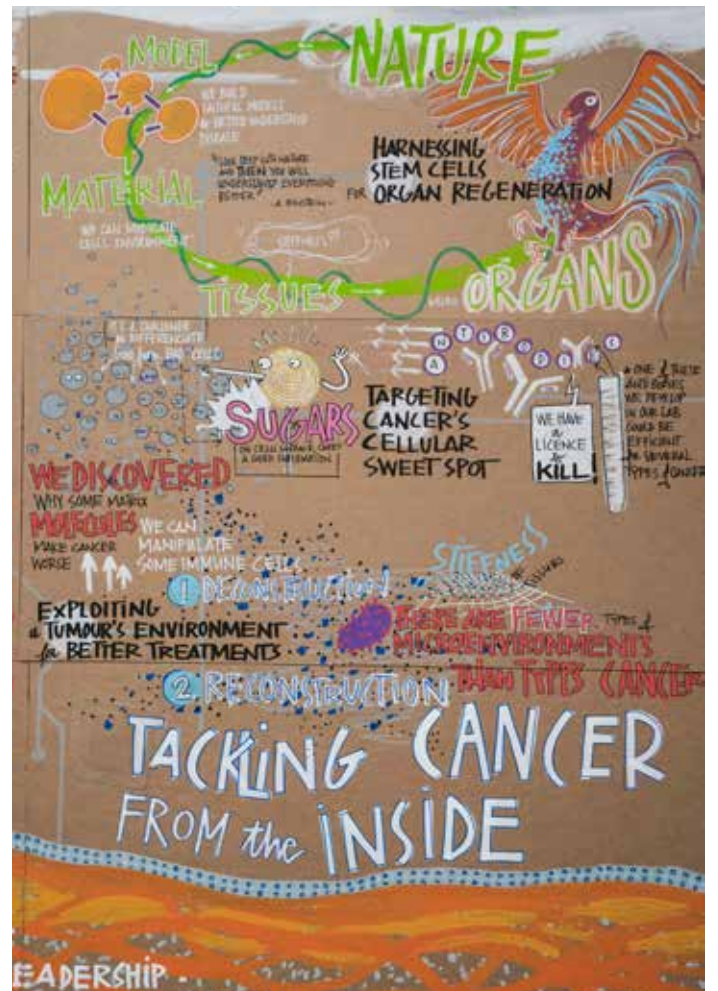 MODEL
NATURE
WE BUILD
FAITHFUL MODELS
TO BETTER UNDERSTAND
DISEASE
"LOOK DEEP INTO NATURE
AND THEN YOU WILL
UNDERSTAND EVERYTHING
BETTER"
HARNESSING
STEM CELLS
FOR ORGAN REGENERATION
MATERIAL
WE CAN
CELLS ENVIRONMENT
TISSUES
ORGANS
IT'S A CHALLENGE
ANTIBODIES
SUGARS
ON CELL SURFACE CARRY
A GOOD INFORMATION
TARGETING
CANCER'S
CELLULAR
SWEET SPOT
WE HAVE
a
LICENCE
to
KILL!
ONE of THESE
ANTIBODIES
WE DEVELOP
IN OUR LAB
COULD BE
EFFICIENT
SEVERAL
TYPES of CANCER
WE DISCOVERED
WHY SOME MATRIX
MOLECULES
MAKE CANCER
WORSE
WE CAN
MANIPULATE
SOME IMMUNE CELLS
STIFFNESS
1 DECONSTRUCTION
EXPLOITING
a TUMOUR'S ENVIRONMENT
for BETTER TREATMENTS
THERE ARE FEWER TYPES of
MICROENVIRONMENTS
THAN TYPES CANCER
2. RECONSTRUCTION
TACKLING CANCER
FROM the INSIDE
EADERSHIP